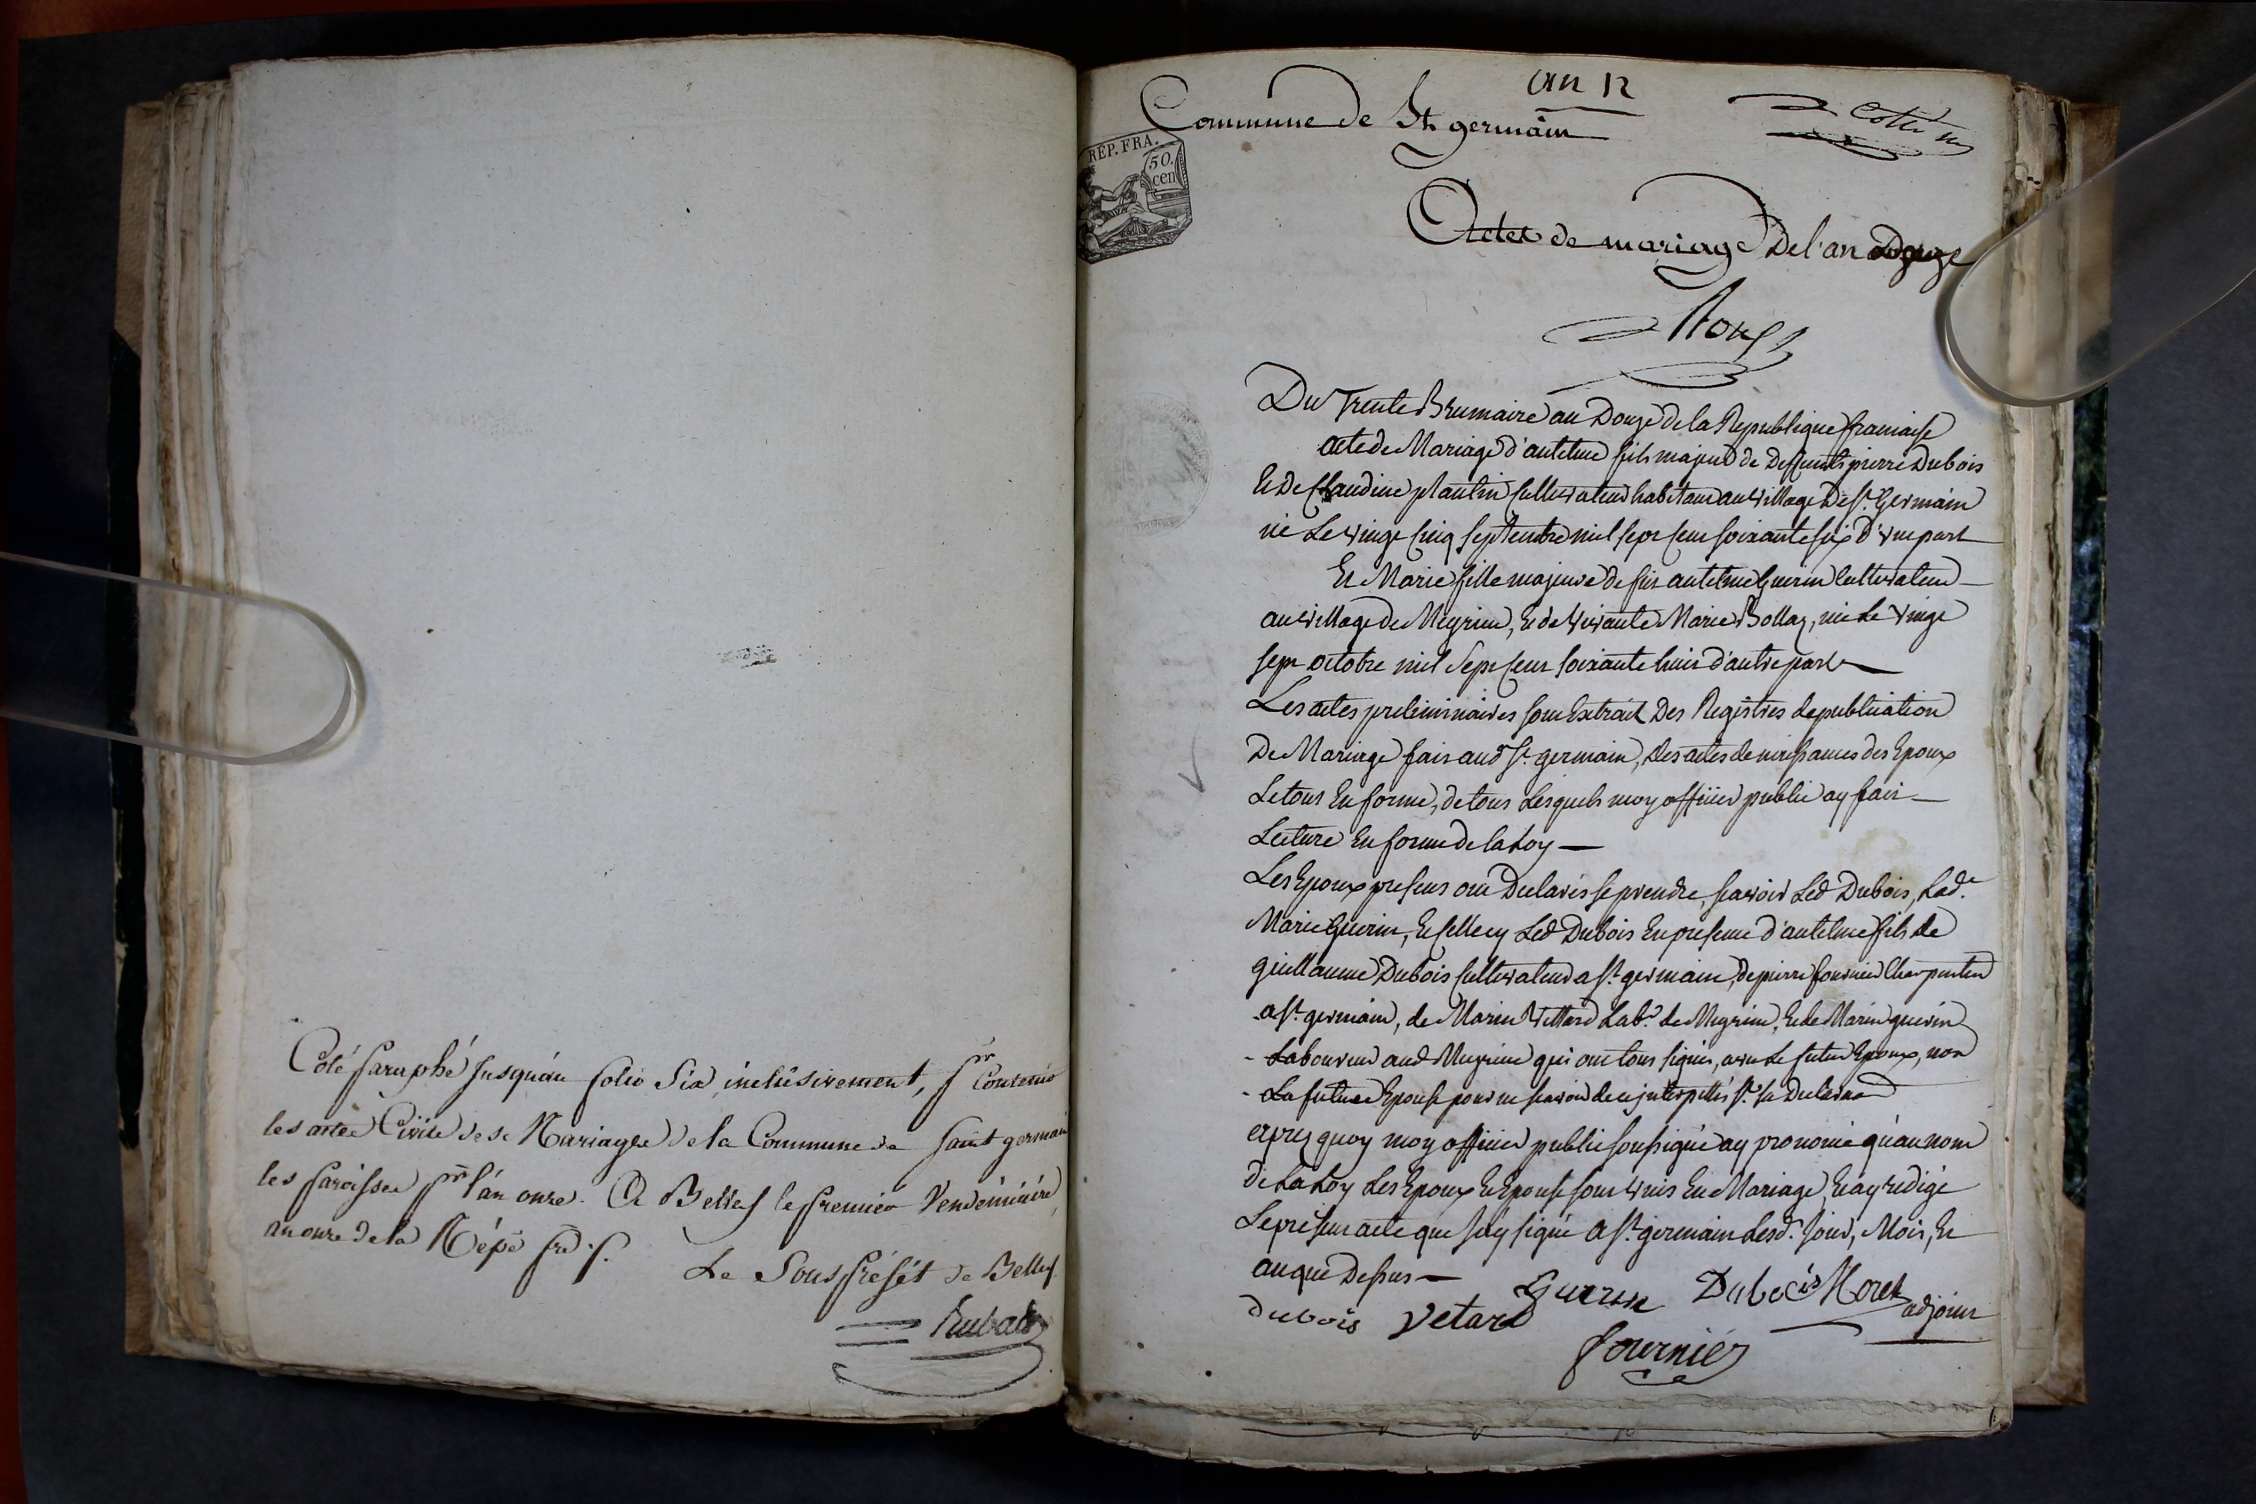 Coté paraphé jusqu'au folio Six inclusivement, pr Contenir
les actes Civils des Mariages de la Commune de Saint germain
les paroisses pr l'an onze. A Belley le premier Vendémiaire
an onze de la Répe fre ./.
Le Sous préfet de Belley
Rubat
an 12
Commune de St germain
REP. FRA.
50.
cen
Actes de mariage De l'an Douze
Du Trente Brumaire an Douze de la Republique francaise
acte de Mariage d'antelme fils majeur de Deffunts pierre Dubois
Et De Claudine plantin Cultivateur habitant au village De St. Germain
né Le vingt Cinq Septembre mil sept Cent soixante six D'une part
Et Marie fille majeure de feu antelme Guerin Cultivateur
au village de Meyrieu, Et de vivante Marie Bollay, née Le vingt
sept octobre mil Sept Cent soixante huit d'autre part
Les actes preliminaires sont Extrait Des Registres de publication
De Mariage fait aud St. germain, Des actes de naissances des Epoux
Le tout En forme, de tous Lesquels moy officier public ay fait
Lecture En forme de la Loy
Les Epoux presens ont Declarés se prendre, scavoir Led Dubois, Lad.e
Marie Guerin, Et Celle cy Led Dubois En presence d'antelme fils de
guillaume Dubois Cultivateur a St. germain, De pierre fournier Charpentier
a St. germain, de Marin Vettard Lab.r de Meyrieu, Et de Marin guerin
Laboureur aud Meyrieu qui ont tous signés, avec Le futur Epoux, non
La future Epouse pour ne scavoir de ce interpellés St. sa Declaraon
apres quoy moy officier public soussigné ay prononcé qu'au nom
de La Loy Les Epoux Et Epouse sont unis En Mariage, Et ay redigé
Le present acte que j'ay signé a St. germain Lesd. Jour, Mois, Et
an que Dessus
Guerin Dubois Moret adjoint
dubois vetard
fournier